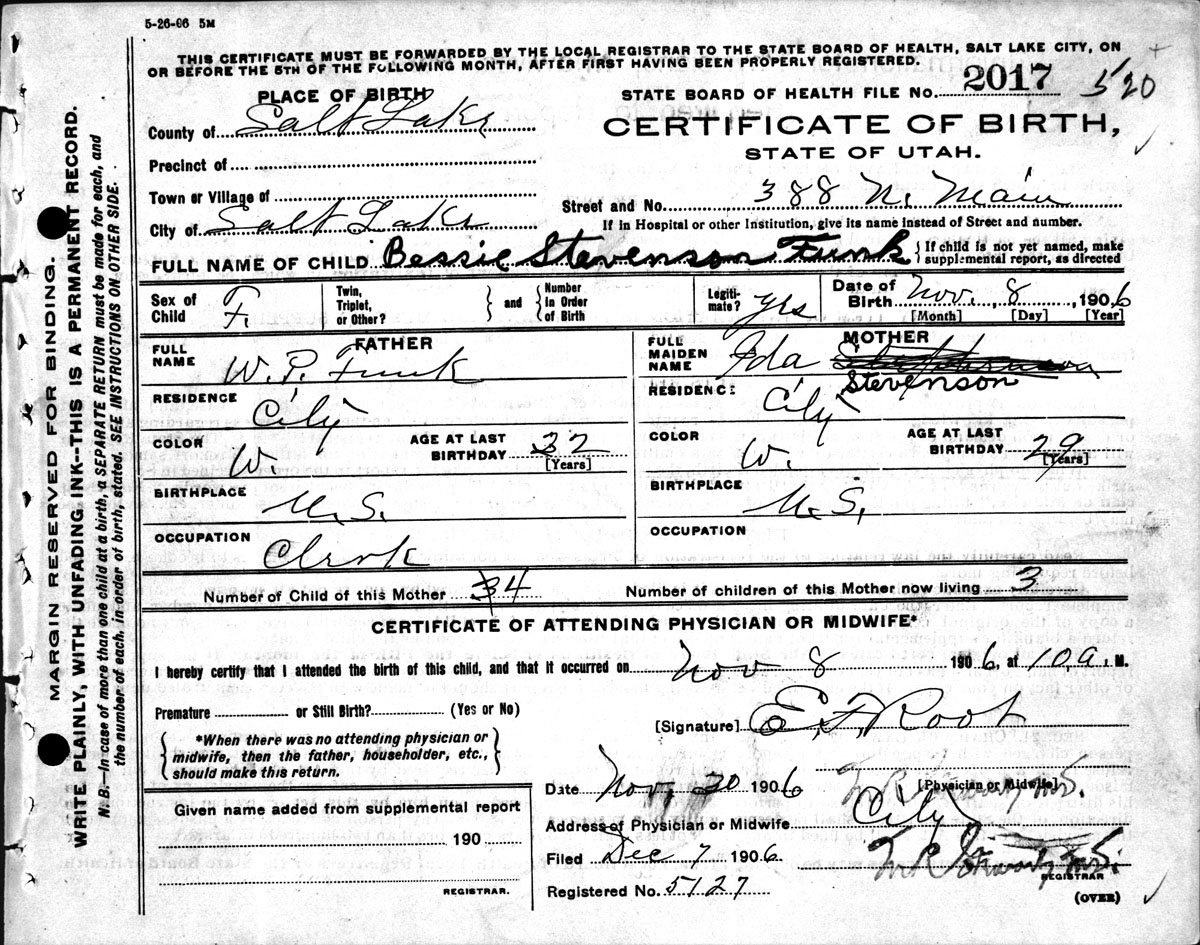 5-26-06 5M
THIS CERTIFICATE MUST BE FORWARDED BY THE LOCAL REGISTRAR TO THE STATE BOARD OF HEALTH, SALT LAKE CITY, ON
OR BEFORE THE 5TH OF THE FOLLOWING MONTH, AFTER FIRST HAVING BEEN PROPERLY REGISTERED.
PLACE OF BIRTH
STATE BOARD OF HEALTH FILE NO. 2017 520
County of Salt Lake
CERTIFICATE OF BIRTH,
STATE OF UTAH.
Precinct of
Town or Village of
Street and No. 388 N. Main
City of Salt Lake
If in Hospital or other Institution, give its name instead of Street and number.
FULL NAME OF CHILD Bessie Stevenson Funk { If child is not yet named, make
supplemental report, as directed
Sex of Child F. Twin, Triplet, or Other? } and { Number in Order of Birth Legiti-mate? yes Date of Birth Nov. 8, 1906
[Month] [Day] [Year]
FATHER
FULL NAME W. P. Funk
RESIDENCE City
COLOR W. AGE AT LAST BIRTHDAY 32
[Years]
BIRTHPLACE U. S.
OCCUPATION Clerk
MOTHER
FULL MAIDEN NAME Ida Stevenson
RESIDENCE City
COLOR W. AGE AT LAST BIRTHDAY 29
[Years]
BIRTHPLACE U. S.
OCCUPATION
Number of Child of this Mother 34 Number of children of this Mother now living 3
CERTIFICATE OF ATTENDING PHYSICIAN OR MIDWIFE*
I hereby certify that I attended the birth of this child, and that it occurred on Nov 8 1906, at 10 a. M.
Premature or Still Birth? (Yes or No)
[Signature] E. F. Root
{ *When there was no attending physician or
midwife, then the father, householder, etc.,
should make this return. }
[Physician or Midwife]
Date Nov 30 1906
Given name added from supplemental report
190
REGISTRAR.
Address of Physician or Midwife City
Filed Dec 7 1906
REGISTRAR
Registered No. 5127
(OVER)
MARGIN RESERVED FOR BINDING.
WRITE PLAINLY, WITH UNFADING INK--THIS IS A PERMANENT RECORD.
N. B.—In case of more than one child at a birth, a SEPARATE RETURN must be made for each, and
the number of each, in order of birth, stated. SEE INSTRUCTIONS ON OTHER SIDE.